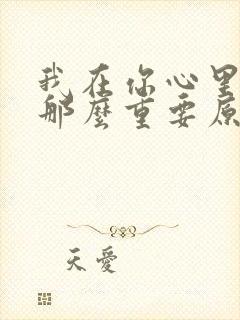 我在你心里
那麼重要原
天愛